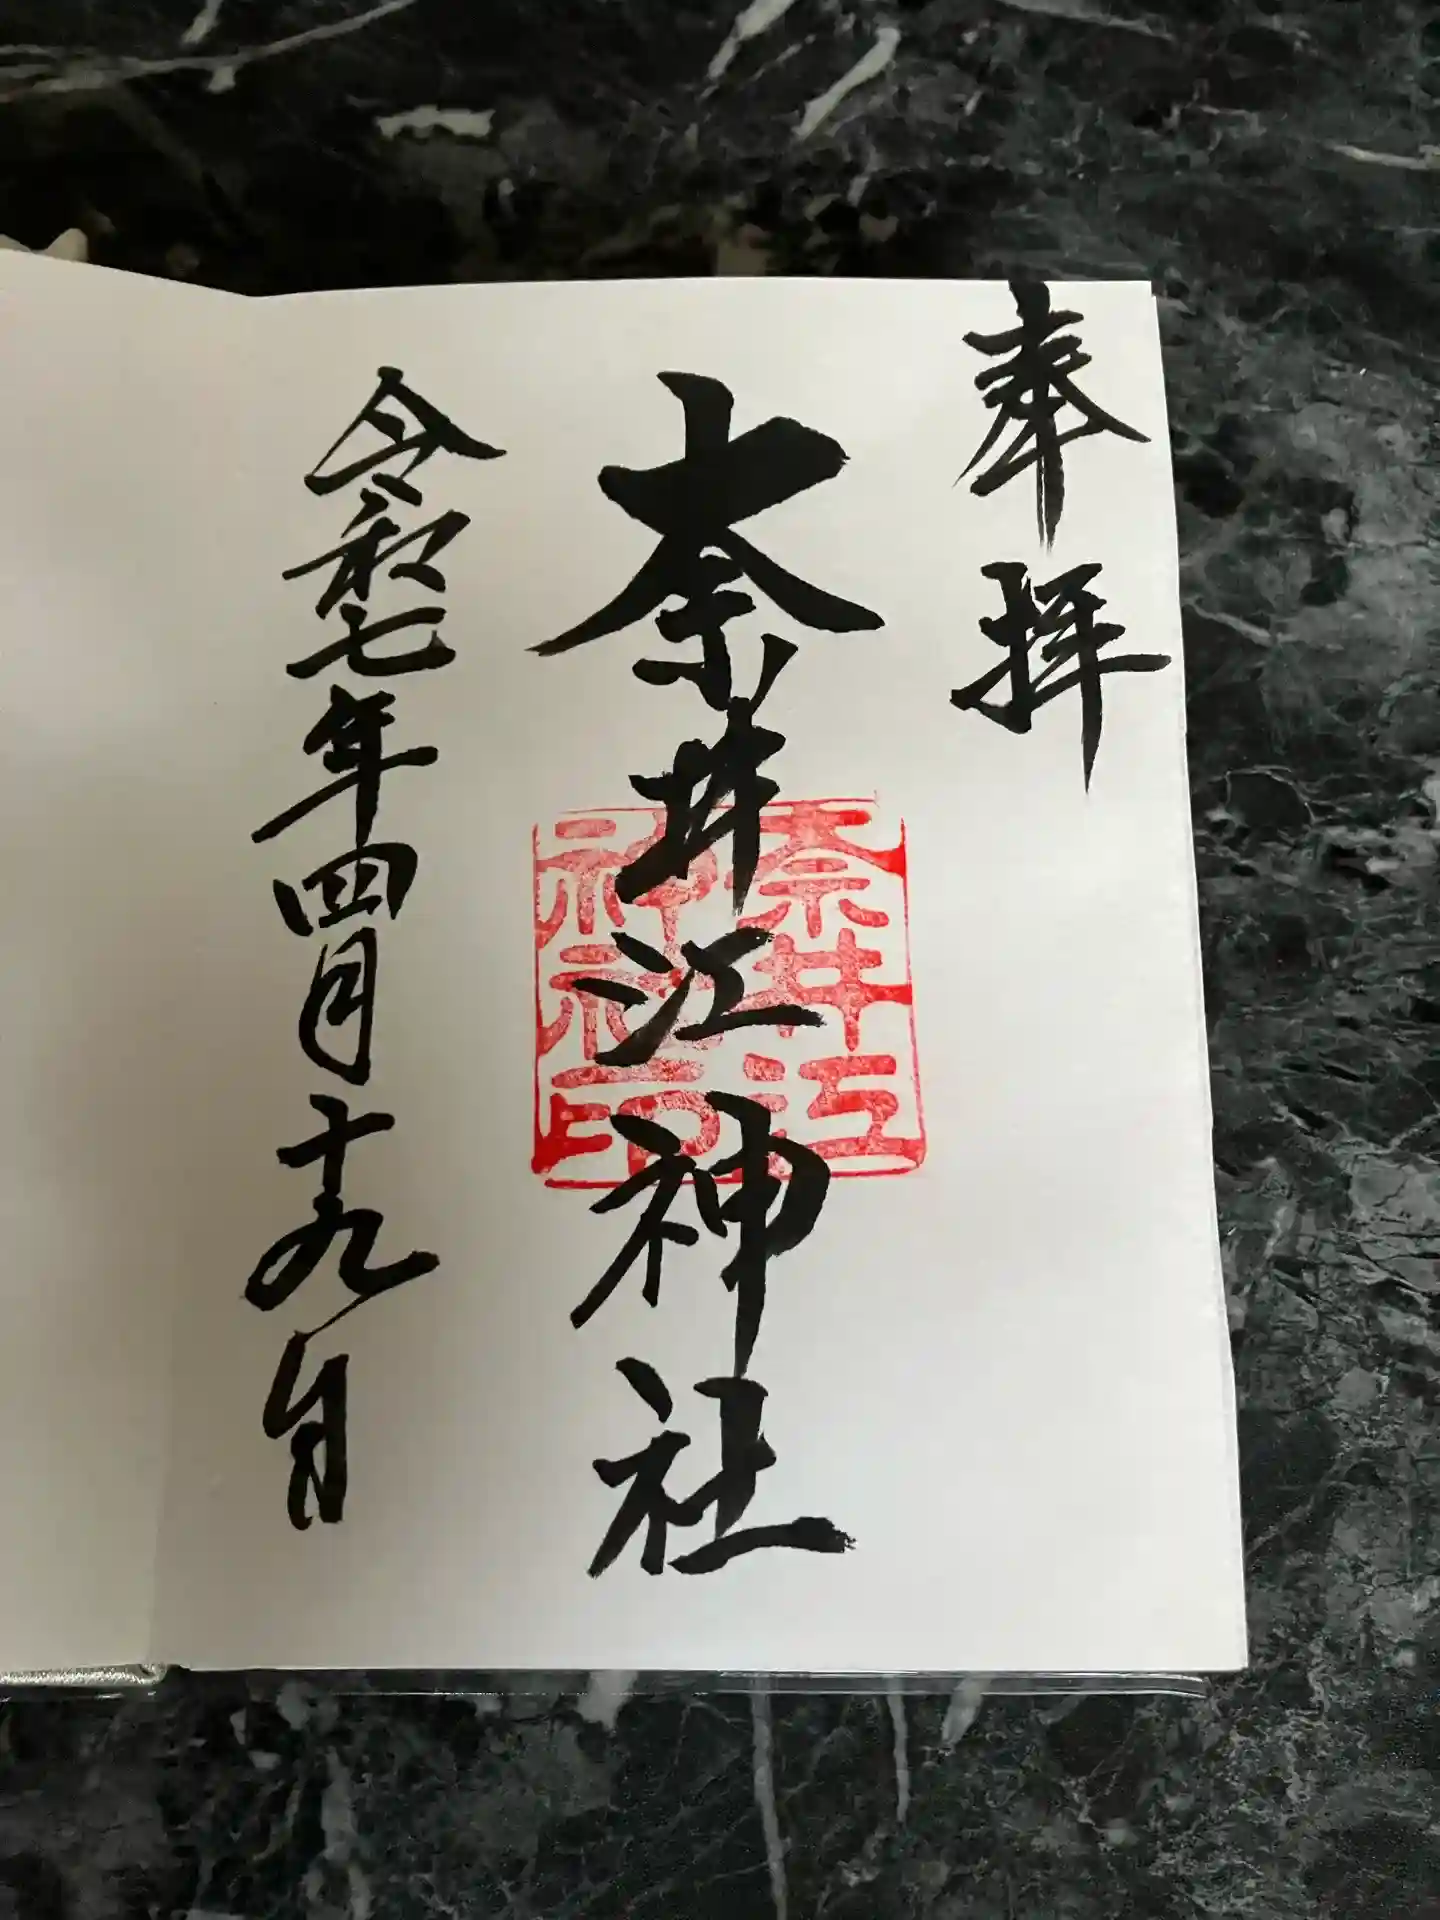 奉拝
奈井江神社
奈井江
神社印
令和七年四月十九日